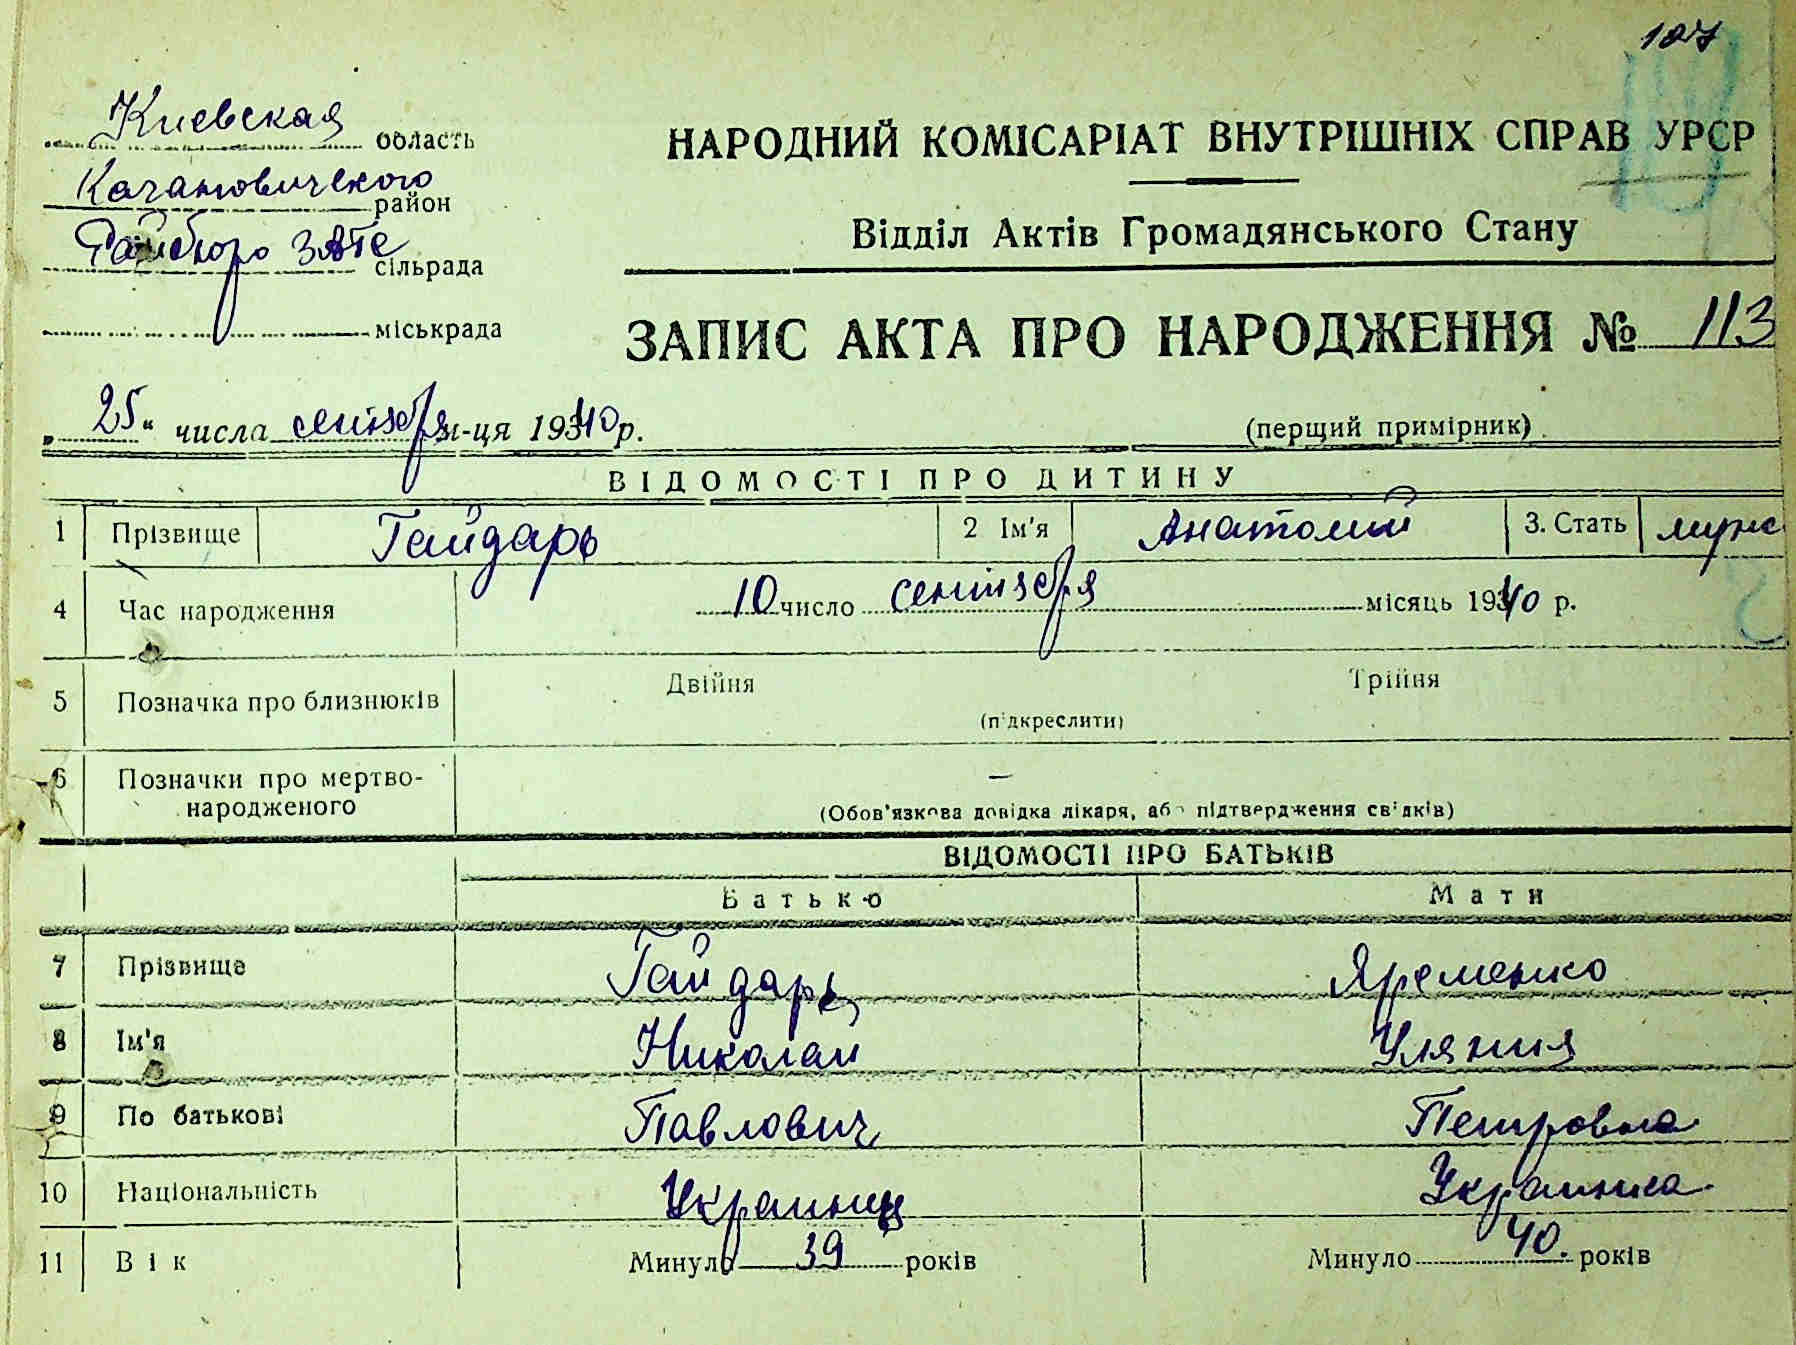 107
Киевская область
Кагановичского район
Райбюро ЗАГС сільрада
міськрада
НАРОДНИЙ КОМІСАРІАТ ВНУТРІШНІХ СПРАВ УРСР
Відділ Актів Громадянського Стану
ЗАПИС АКТА ПРО НАРОДЖЕННЯ № 113
„25“ числа сентября м-ця 1940 р.
(перщий примірник)
ВІДОМОСТІ ПРО ДИТИНУ
1 Прізвище Гайдарь 2 Ім'я Анатолий 3. Стать муж
4 Час народження 10 число сентября місяць 1940 р.
5 Позначка про близнюків Двійня Трійня
(підкреслити)
6 Позначки про мертво-
народженого —
(Обов'язкова довідка лікаря, або підтвердження свідків)
ВІДОМОСТІ ПРО БАТЬКІВ
Батько Мати
7 Прізвище Гайдарь Яременко
8 Ім'я Николай Уляния
9 По батькові Павлович Петровна
10 Національність Украинец Украинка
11 Вік Минуло 39 років Минуло 40. років